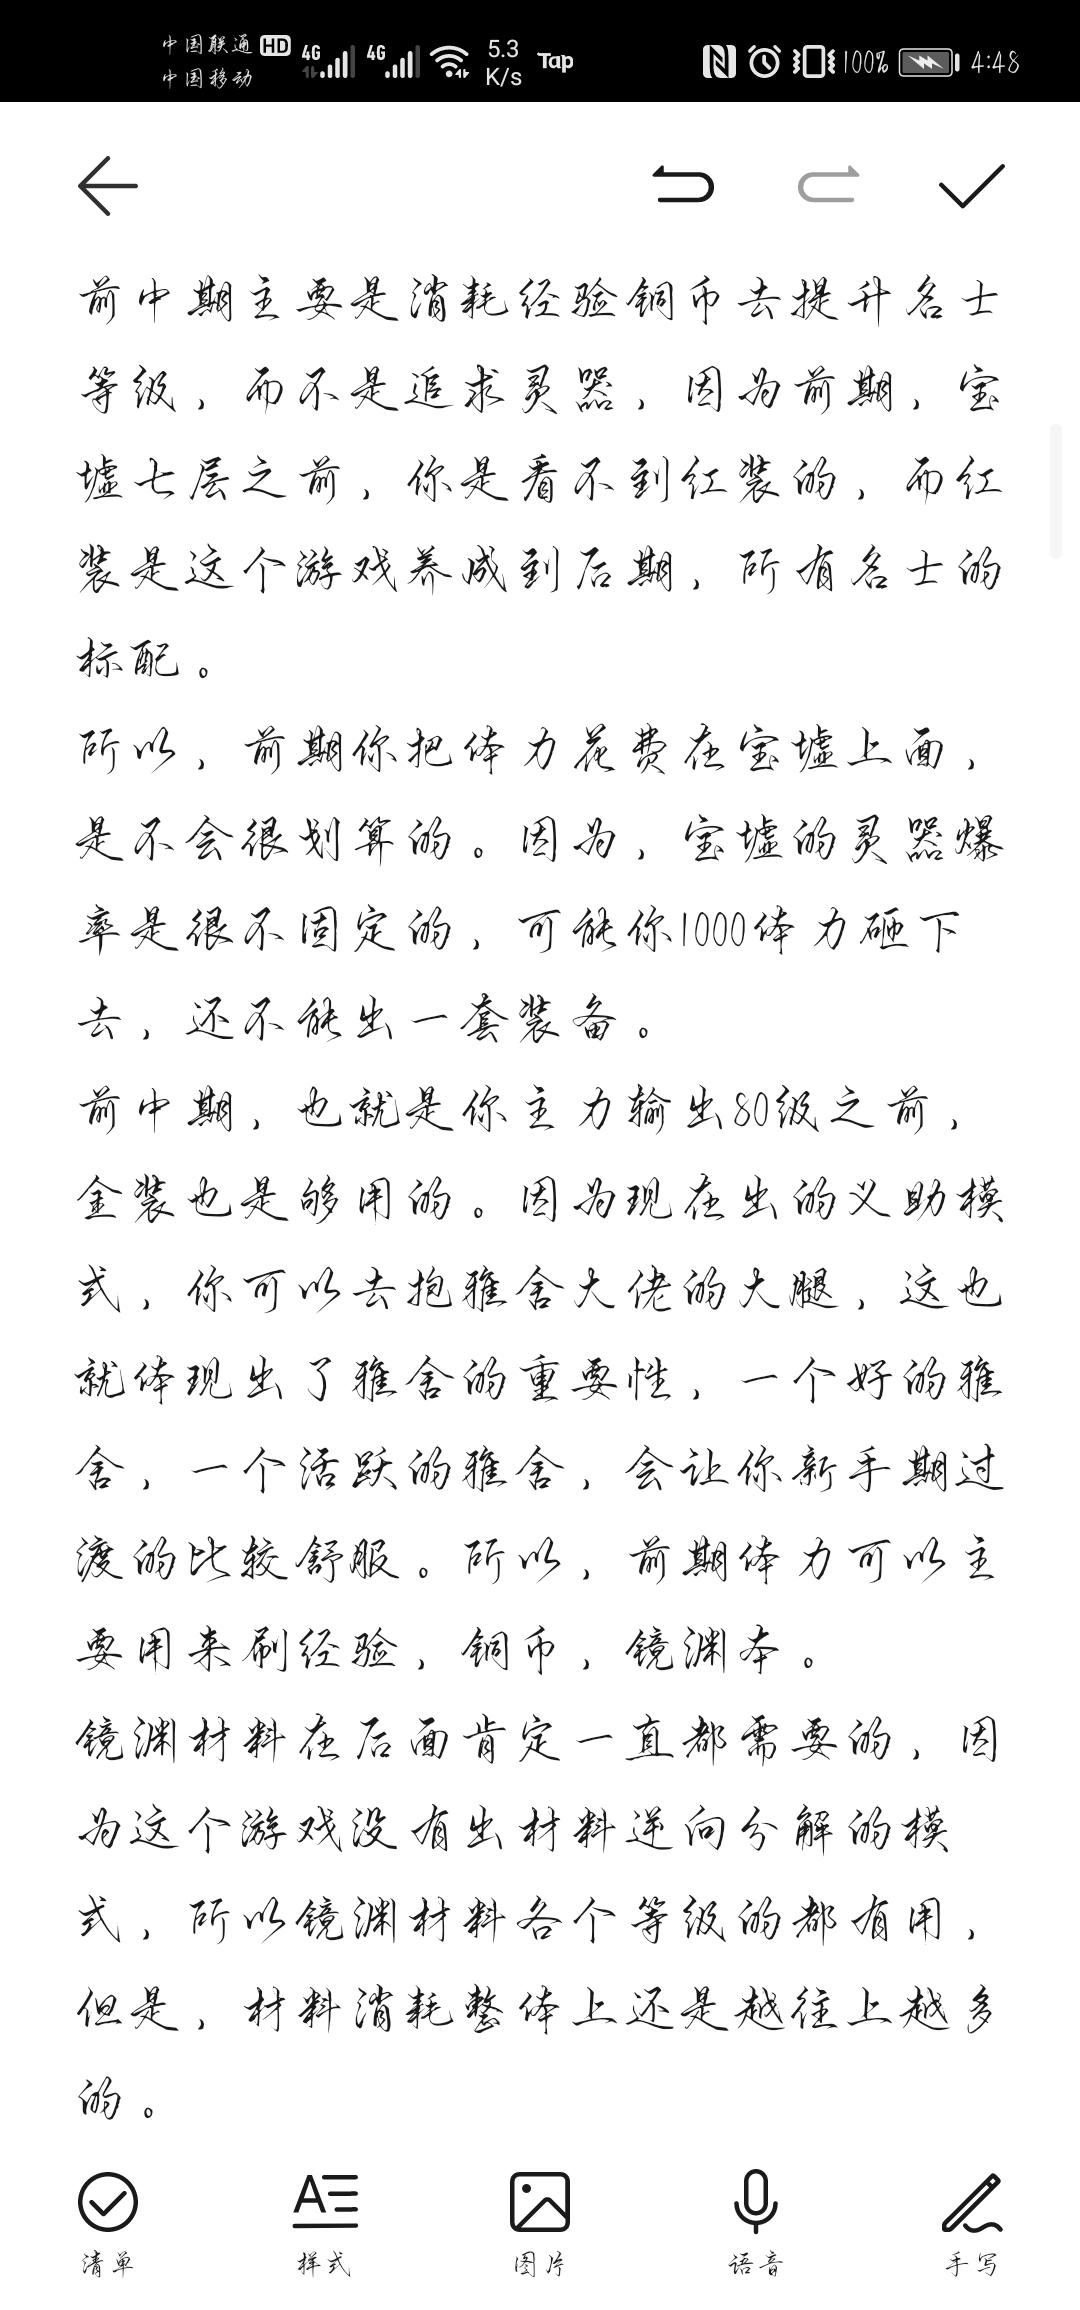 中国联通 HD 4G 4G 5.3 K/s Tap 100% 4:48
中国移动
前中期主要是消耗经验铜币去提升名士
等级，而不是追求灵器，因为前期，宝
墟七层之前，你是看不到红装的，而红
装是这个游戏养成到后期，所有名士的
标配。
所以，前期你把体力花费在宝墟上面，
是不会很划算的。因为，宝墟的灵器爆
率是很不固定的，可能你1000体力砸下
去，还不能出一套装备。
前中期，也就是你主力输出80级之前，
金装也是够用的。因为现在出的义助模
式，你可以去抱雅舍大佬的大腿，这也
就体现出了雅舍的重要性，一个好的雅
舍，一个活跃的雅舍，会让你新手期过
渡的比较舒服。所以，前期体力可以主
要用来刷经验，铜币，镜渊本。
镜渊材料在后面肯定一直都需要的，因
为这个游戏没有出材料逆向分解的模
式，所以镜渊材料各个等级的都有用，
但是，材料消耗整体上还是越往上越多
的。
清单 样式 图片 语音 手写